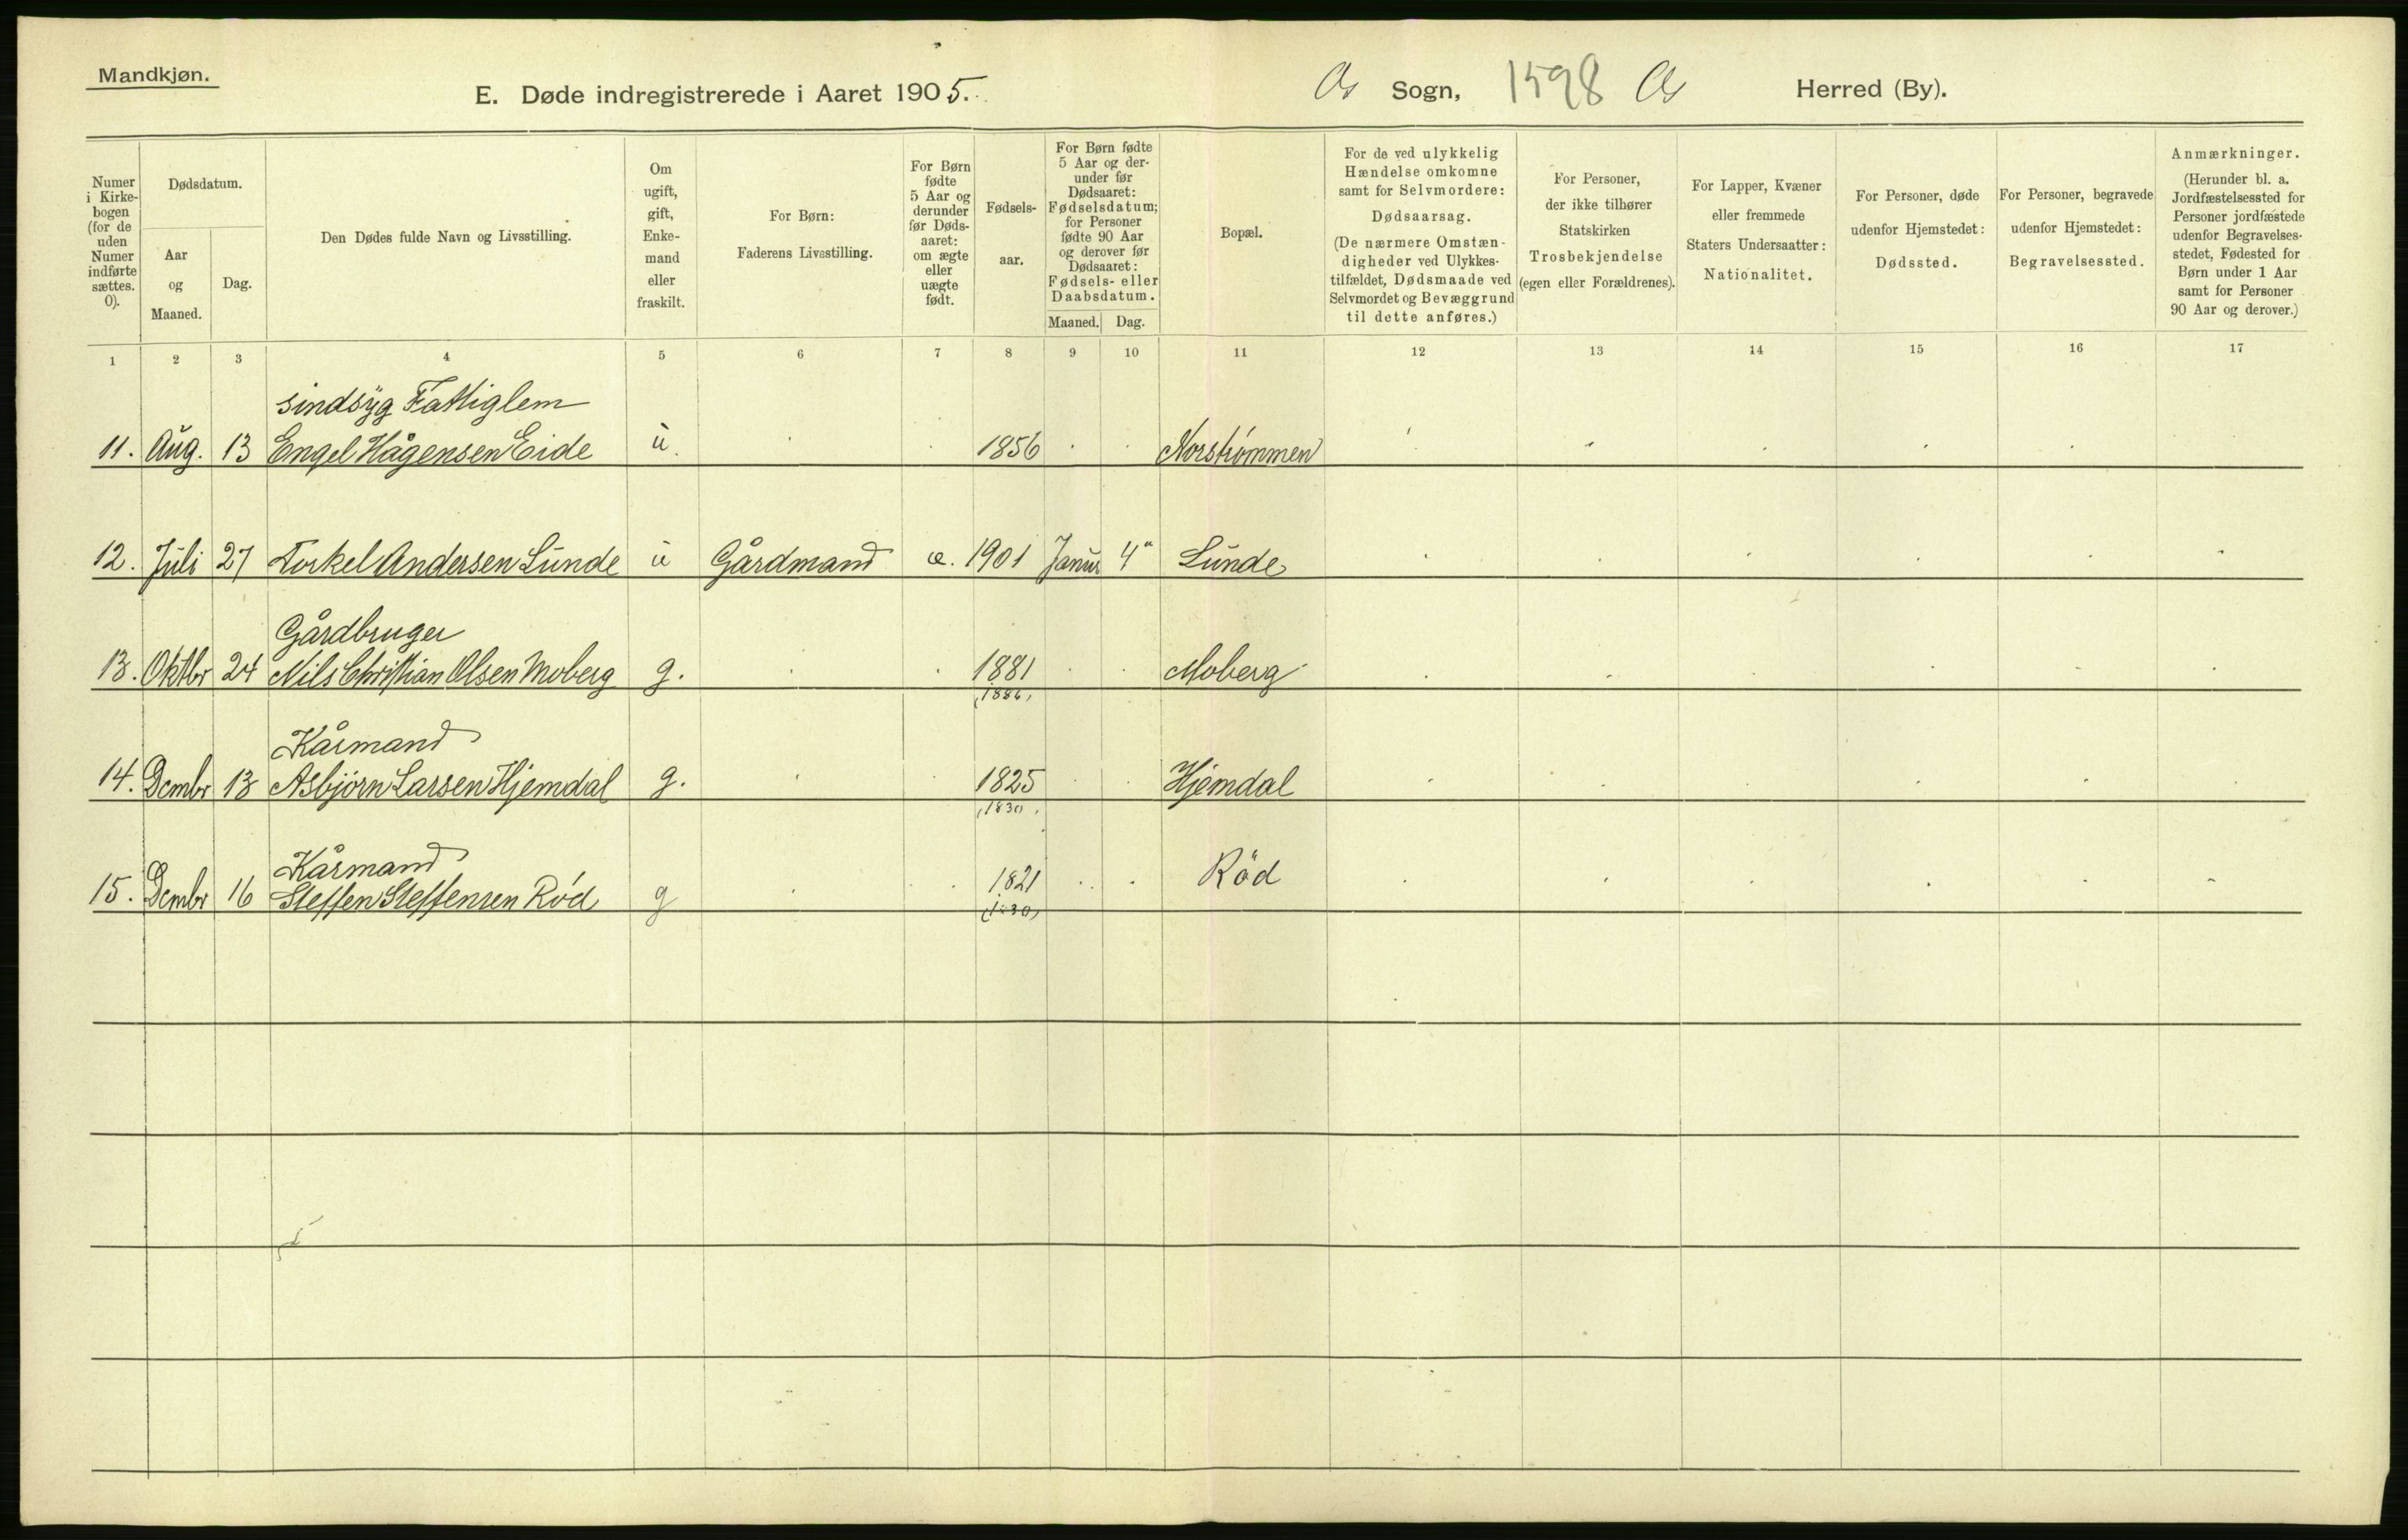 Mandkjøn.
E. Døde indregistrerede i Aaret 1905. Os Sogn, 1598 Os Herred (By).
Numer i Kirke-bogen (for de uden Numer indførte sættes. 0).
Dødsdatum.
Aar og Maaned.
Dag.
Den Dødes fulde Navn og Livsstilling.
Om ugift, gift, Enke-mand eller fraskilt.
For Børn: Faderens Livsstilling.
For Børn fødte 5 Aar og derunder før Døds-aaret: om ægte eller uægte født.
Fødsels-aar.
For Børn fødte 5 Aar og der-under før Dødsaaret: Fødselsdatum; for Personer fødte 90 Aar og derover før Dødsaaret: Fødsels- eller Daabsdatum.
Maaned. Dag.
Bopæl.
For de ved ulykkelig Hændelse omkomne samt for Selvmordere: Dødsaarsag. (De nærmere Omstæn-digheder ved Ulykkes-tilfældet, Dødsmaade ved Selvmordet og Bevæggrund til dette anføres.)
For Personer, der ikke tilhører Statskirken Trosbekjendelse (egen eller Forældrenes).
For Lapper, Kvæner eller fremmede Staters Undersaatter: Nationalitet.
For Personer, døde udenfor Hjemstedet: Dødssted.
For Personer, begravede udenfor Hjemstedet: Begravelsessted.
Anmærkninger. (Herunder bl. a. Jordfæstelsessted for Personer jordfæstede udenfor Begravelses-stedet, Fødested for Børn under 1 Aar samt for Personer 90 Aar og derover.)
1 2 3 4 5 6 7 8 9 10 11 12 13 14 15 16 17
sindsÿg Fattiglem
11. Aug. 13 Engel Hågensen Eide u. 1856 Norstrømmen
12. Juli 27 Torkel Andersen Lunde u Gårdmand æ. 1901 Janur 4 Lunde
Gårdbruger
13. Oktbr 24 Nils Christian Olsen Moberg g. 1881 Moberg
(1886)
Kårmand
14. Dcmbr 13 Asbjørn Larsen Hjemdal g. 1825 Hjemdal
(1830)
Kårmand
15. Dcmbr 16 Steffen Steffensen Rød g 1821 Röd
(1830)